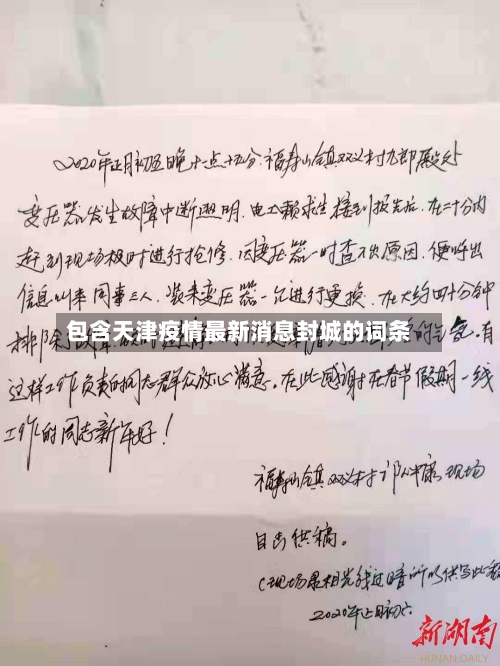 2020年正月初五晚十一点十五分.福寿山镇双义村九郎殿处
变压器发生故障中断照明.电工赖求生接到报告后.在二十分内
赶到现场极时进行抢修.因变压器一时查不出原因.便呼出
信息叫来同事三人.装来变压器一台进行更换.在大约四十分钟
排除
包含天津疫情最新消息封城的词条
有
这样工作负责的同志群众放心满意.在此感谢在春节假期一线
工作的同志新年好！
福寿山镇双义村 现场
目击供稿。
(现场是相光线过暗所以供写此稿
2020年正月初六
新湖南
HUNAN DAILY